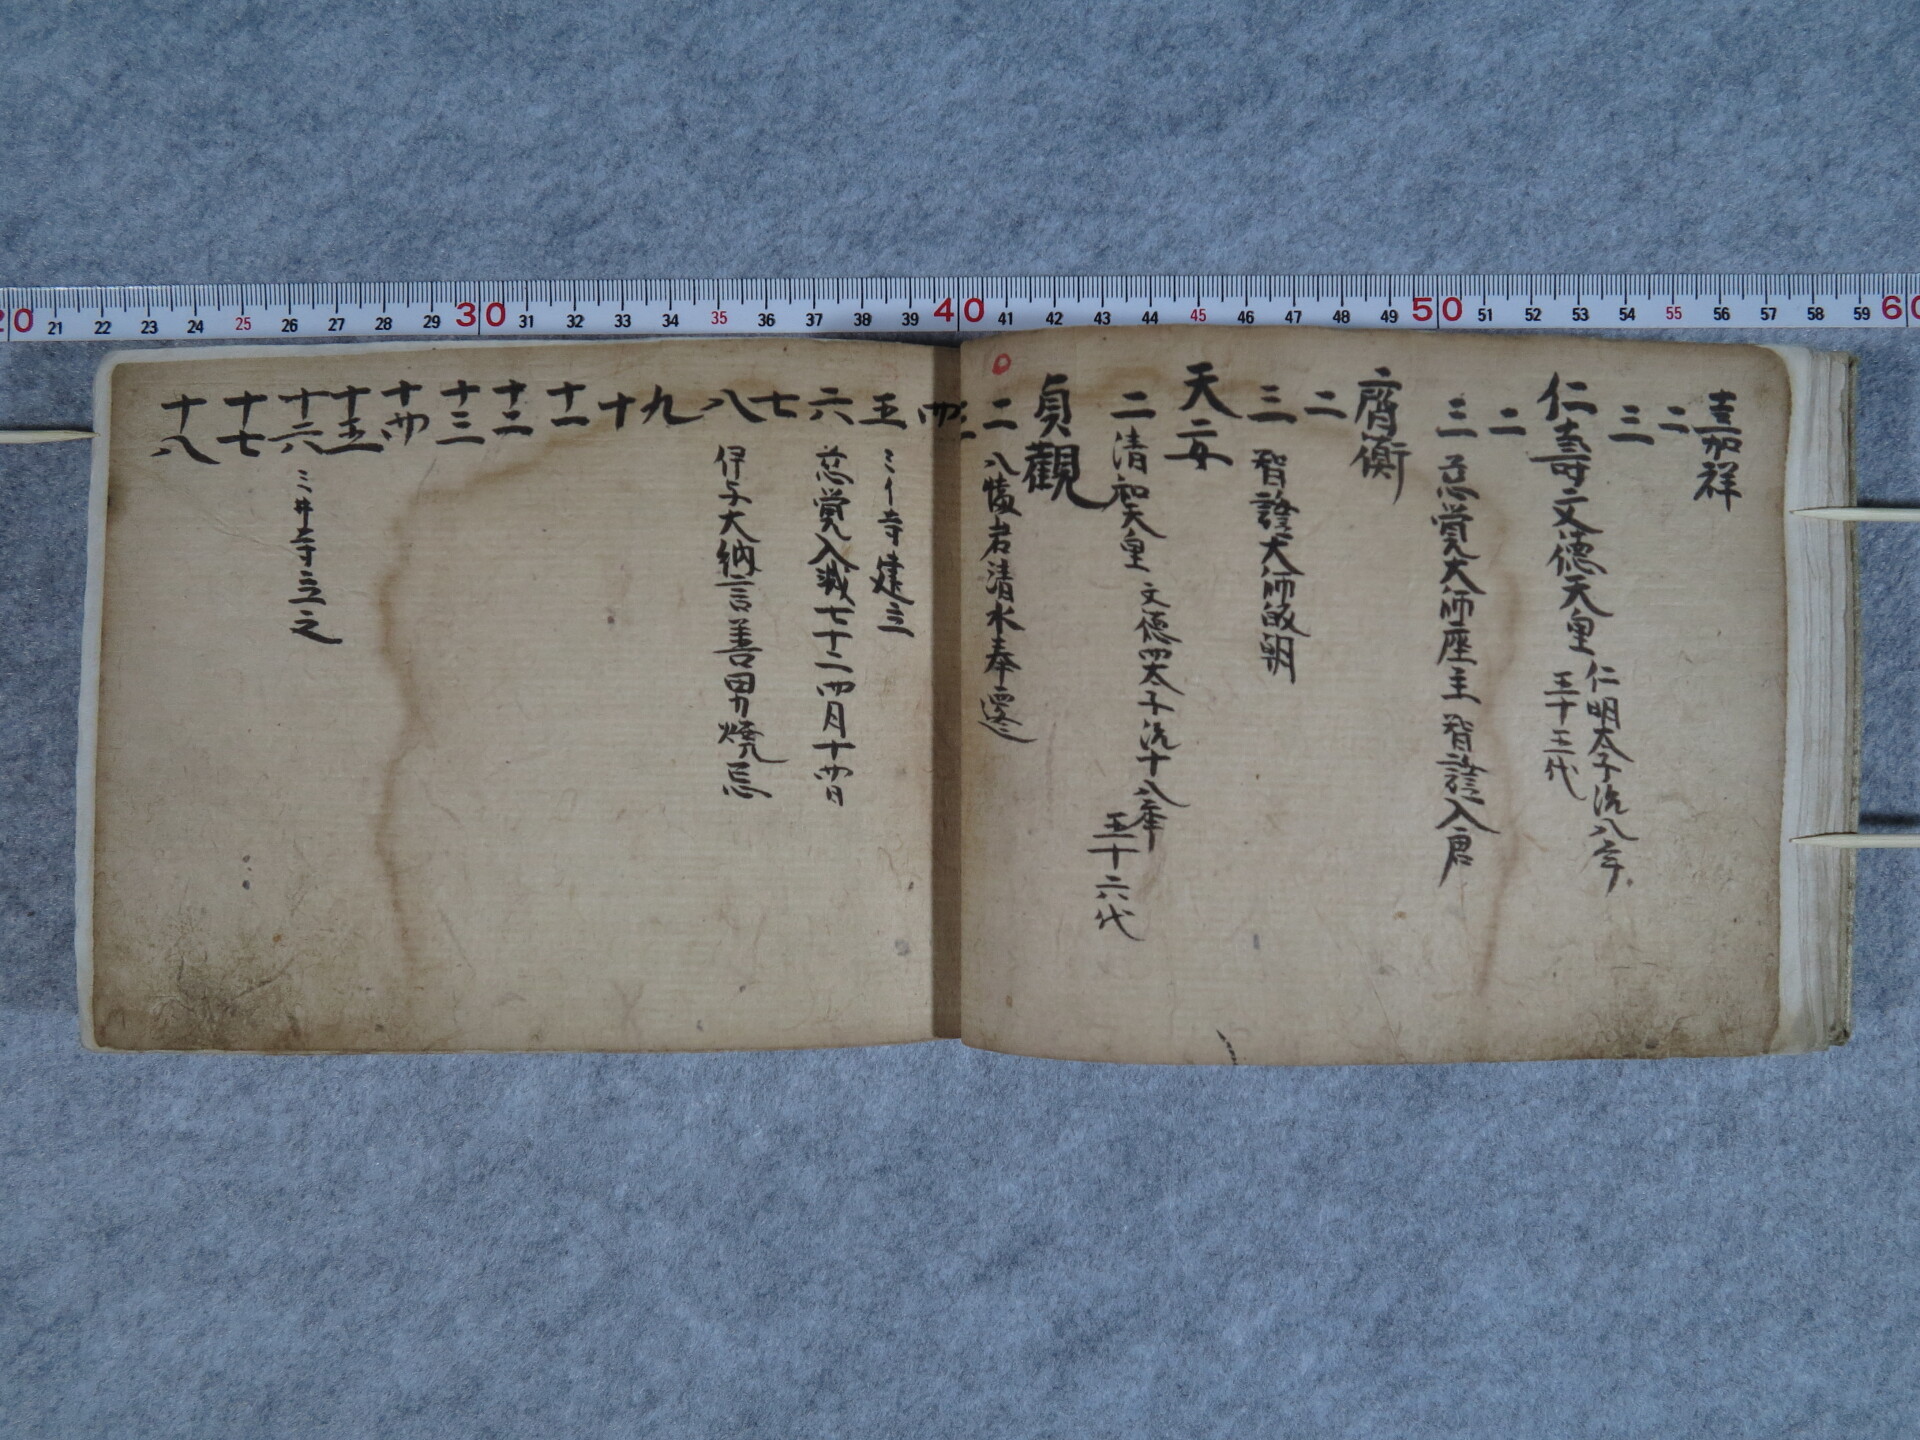 20 21 22 23 24 25 26 27 28 29 30 31 32 33 34 35 36 37 38 39 40 41 42 43 44 45 46 47 48 49 50 51 52 53 54 55 56 57 58 59 60
嘉祥
二
三
仁壽 文德天皇 仁明太子 治八年
五十五代
二
三 慈覚大師座主 智證入唐
齊衡
二
三 智證大師皈朝
天安
二 清和天皇 文德四太子 治十八年
五十六代
貞觀
二 八幡岩清水奉遷
三
四
五 三イ寺建立
六 慈覚入滅七十二四月十四日
七
八 伴大納言善男焼
九
十
十一
十二
十三
十四
十五
十六 三井寺立之
十七
十八